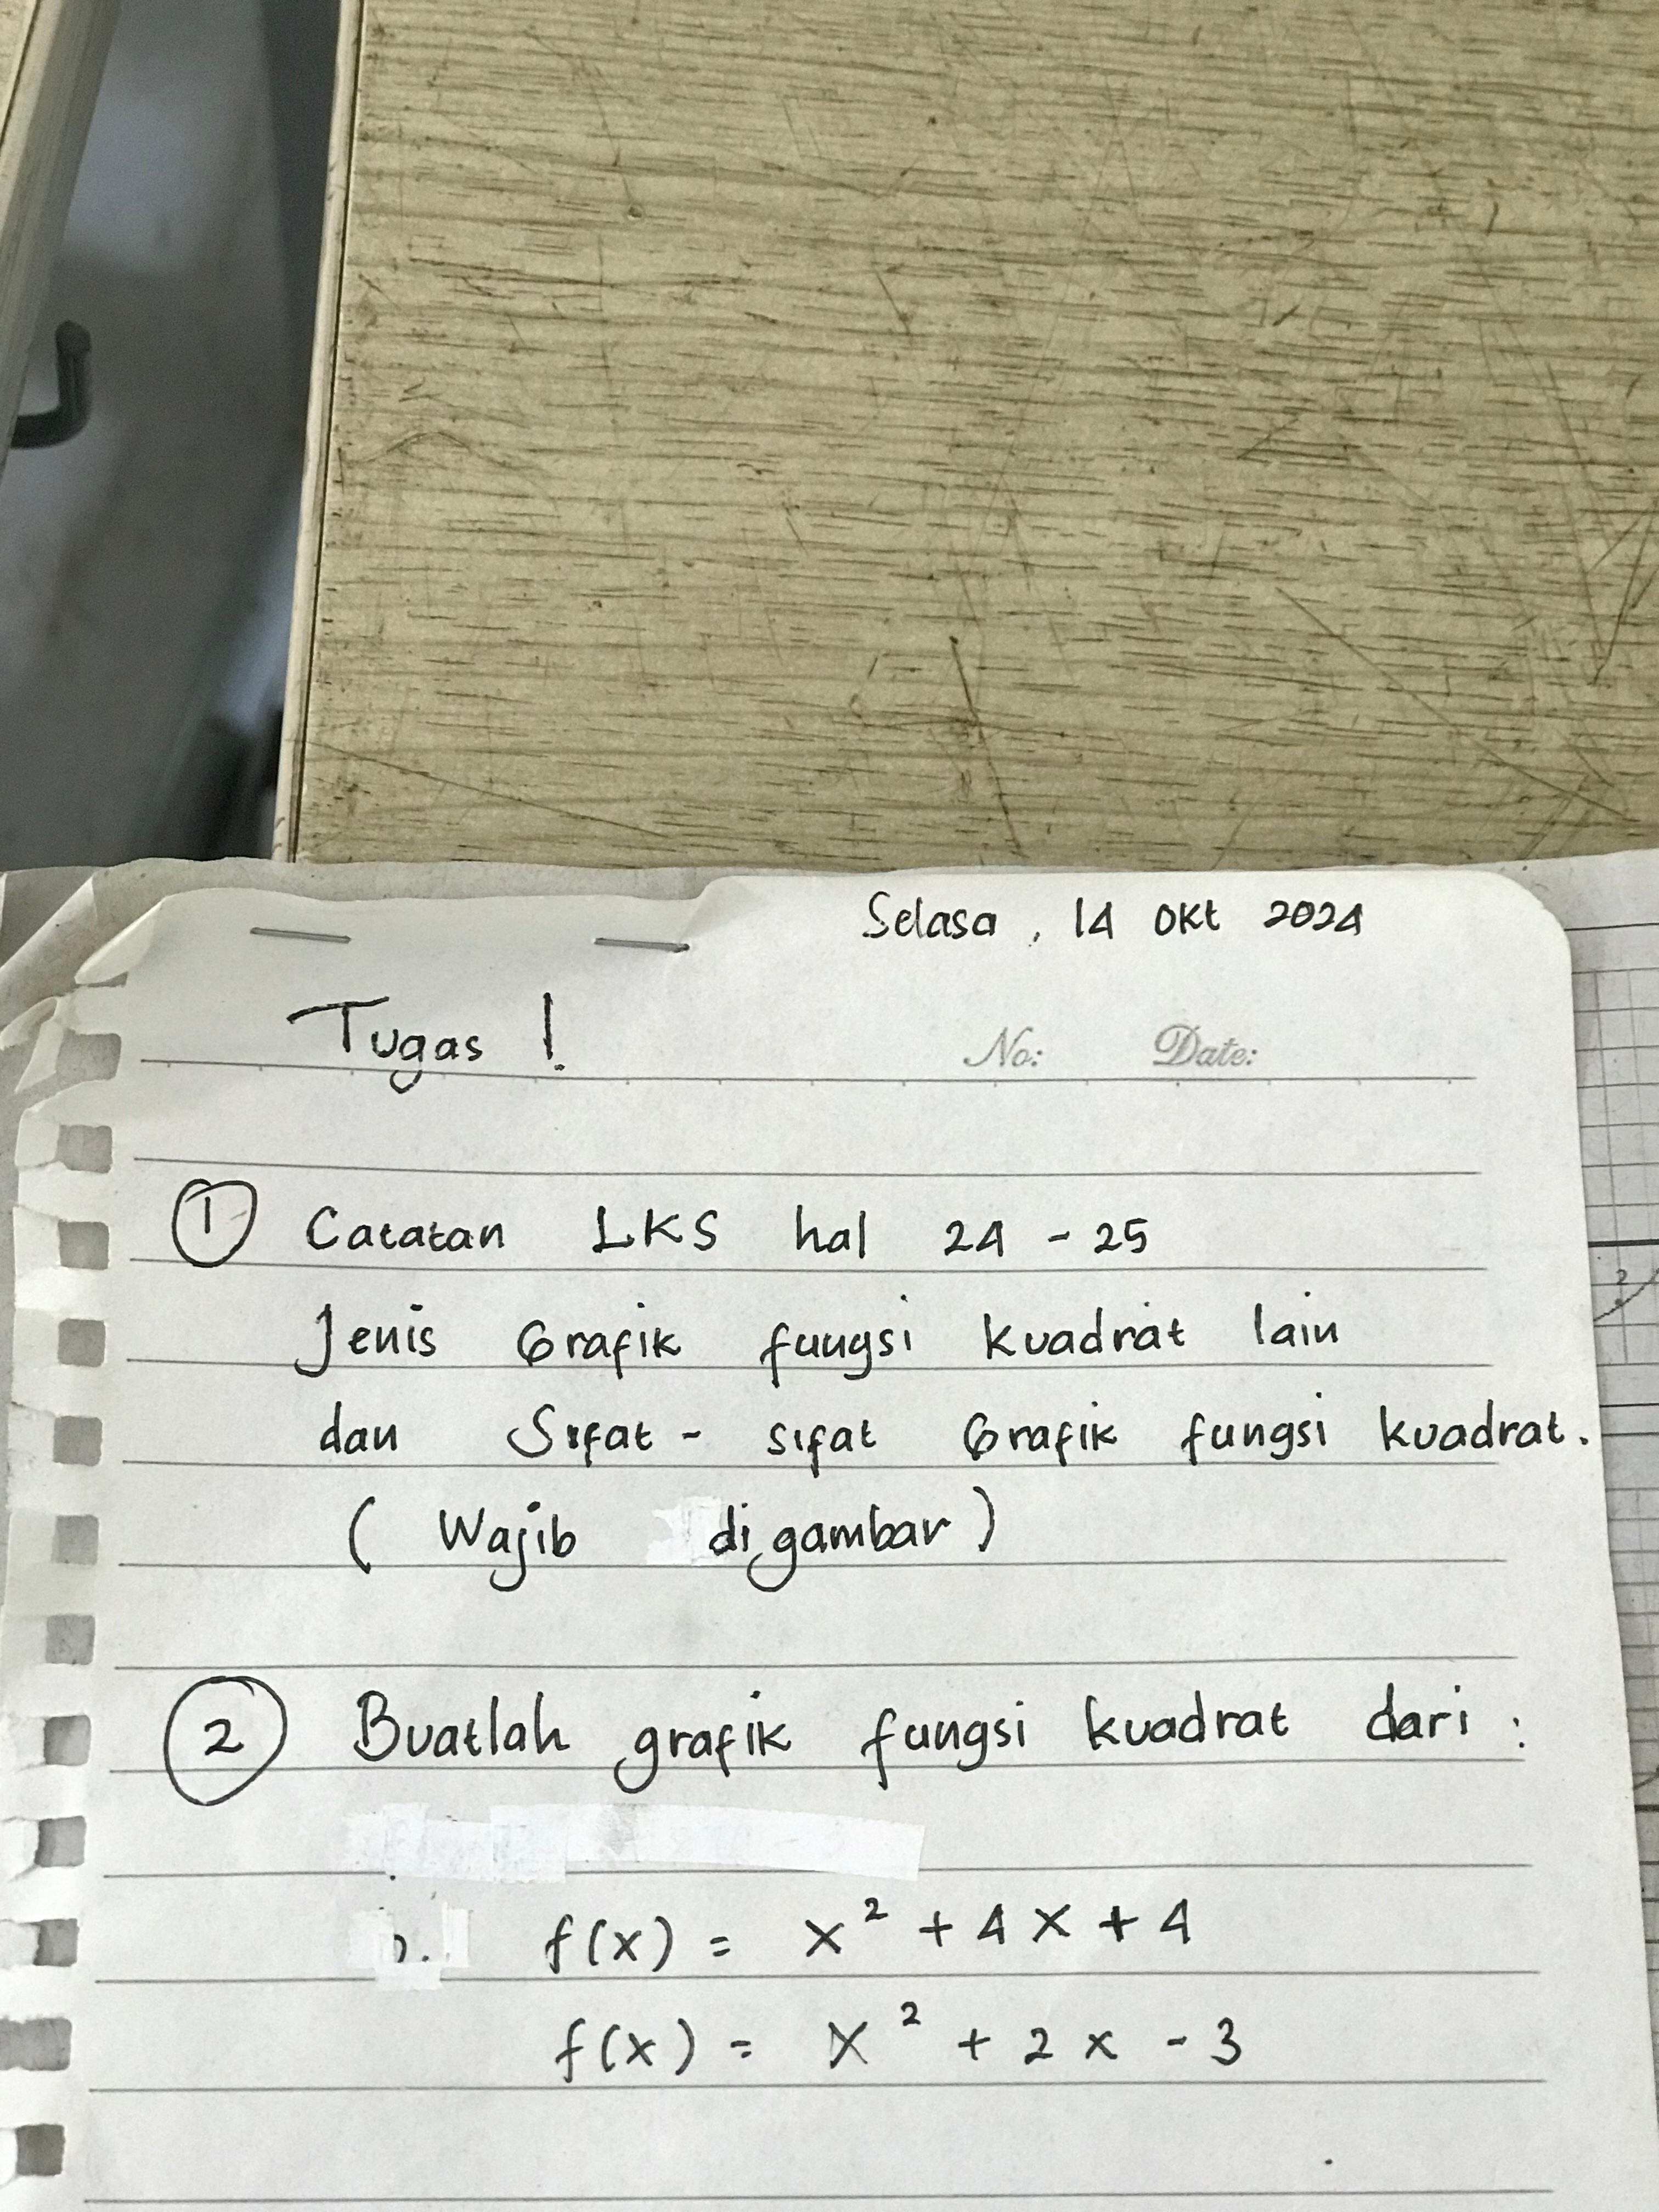 Selasa, 14 Okt 2024
Tugas !
No: Date:
1 Catatan LKS hal 24 - 25
Jenis Grafik fungsi kuadrat lain
dan Sifat - sifat Grafik fungsi kuadrat.
( Wajib di gambar )
2 Buatlah grafik fungsi kuadrat dari :
f(x) = x² + 4x + 4
f(x) = x² + 2x - 3